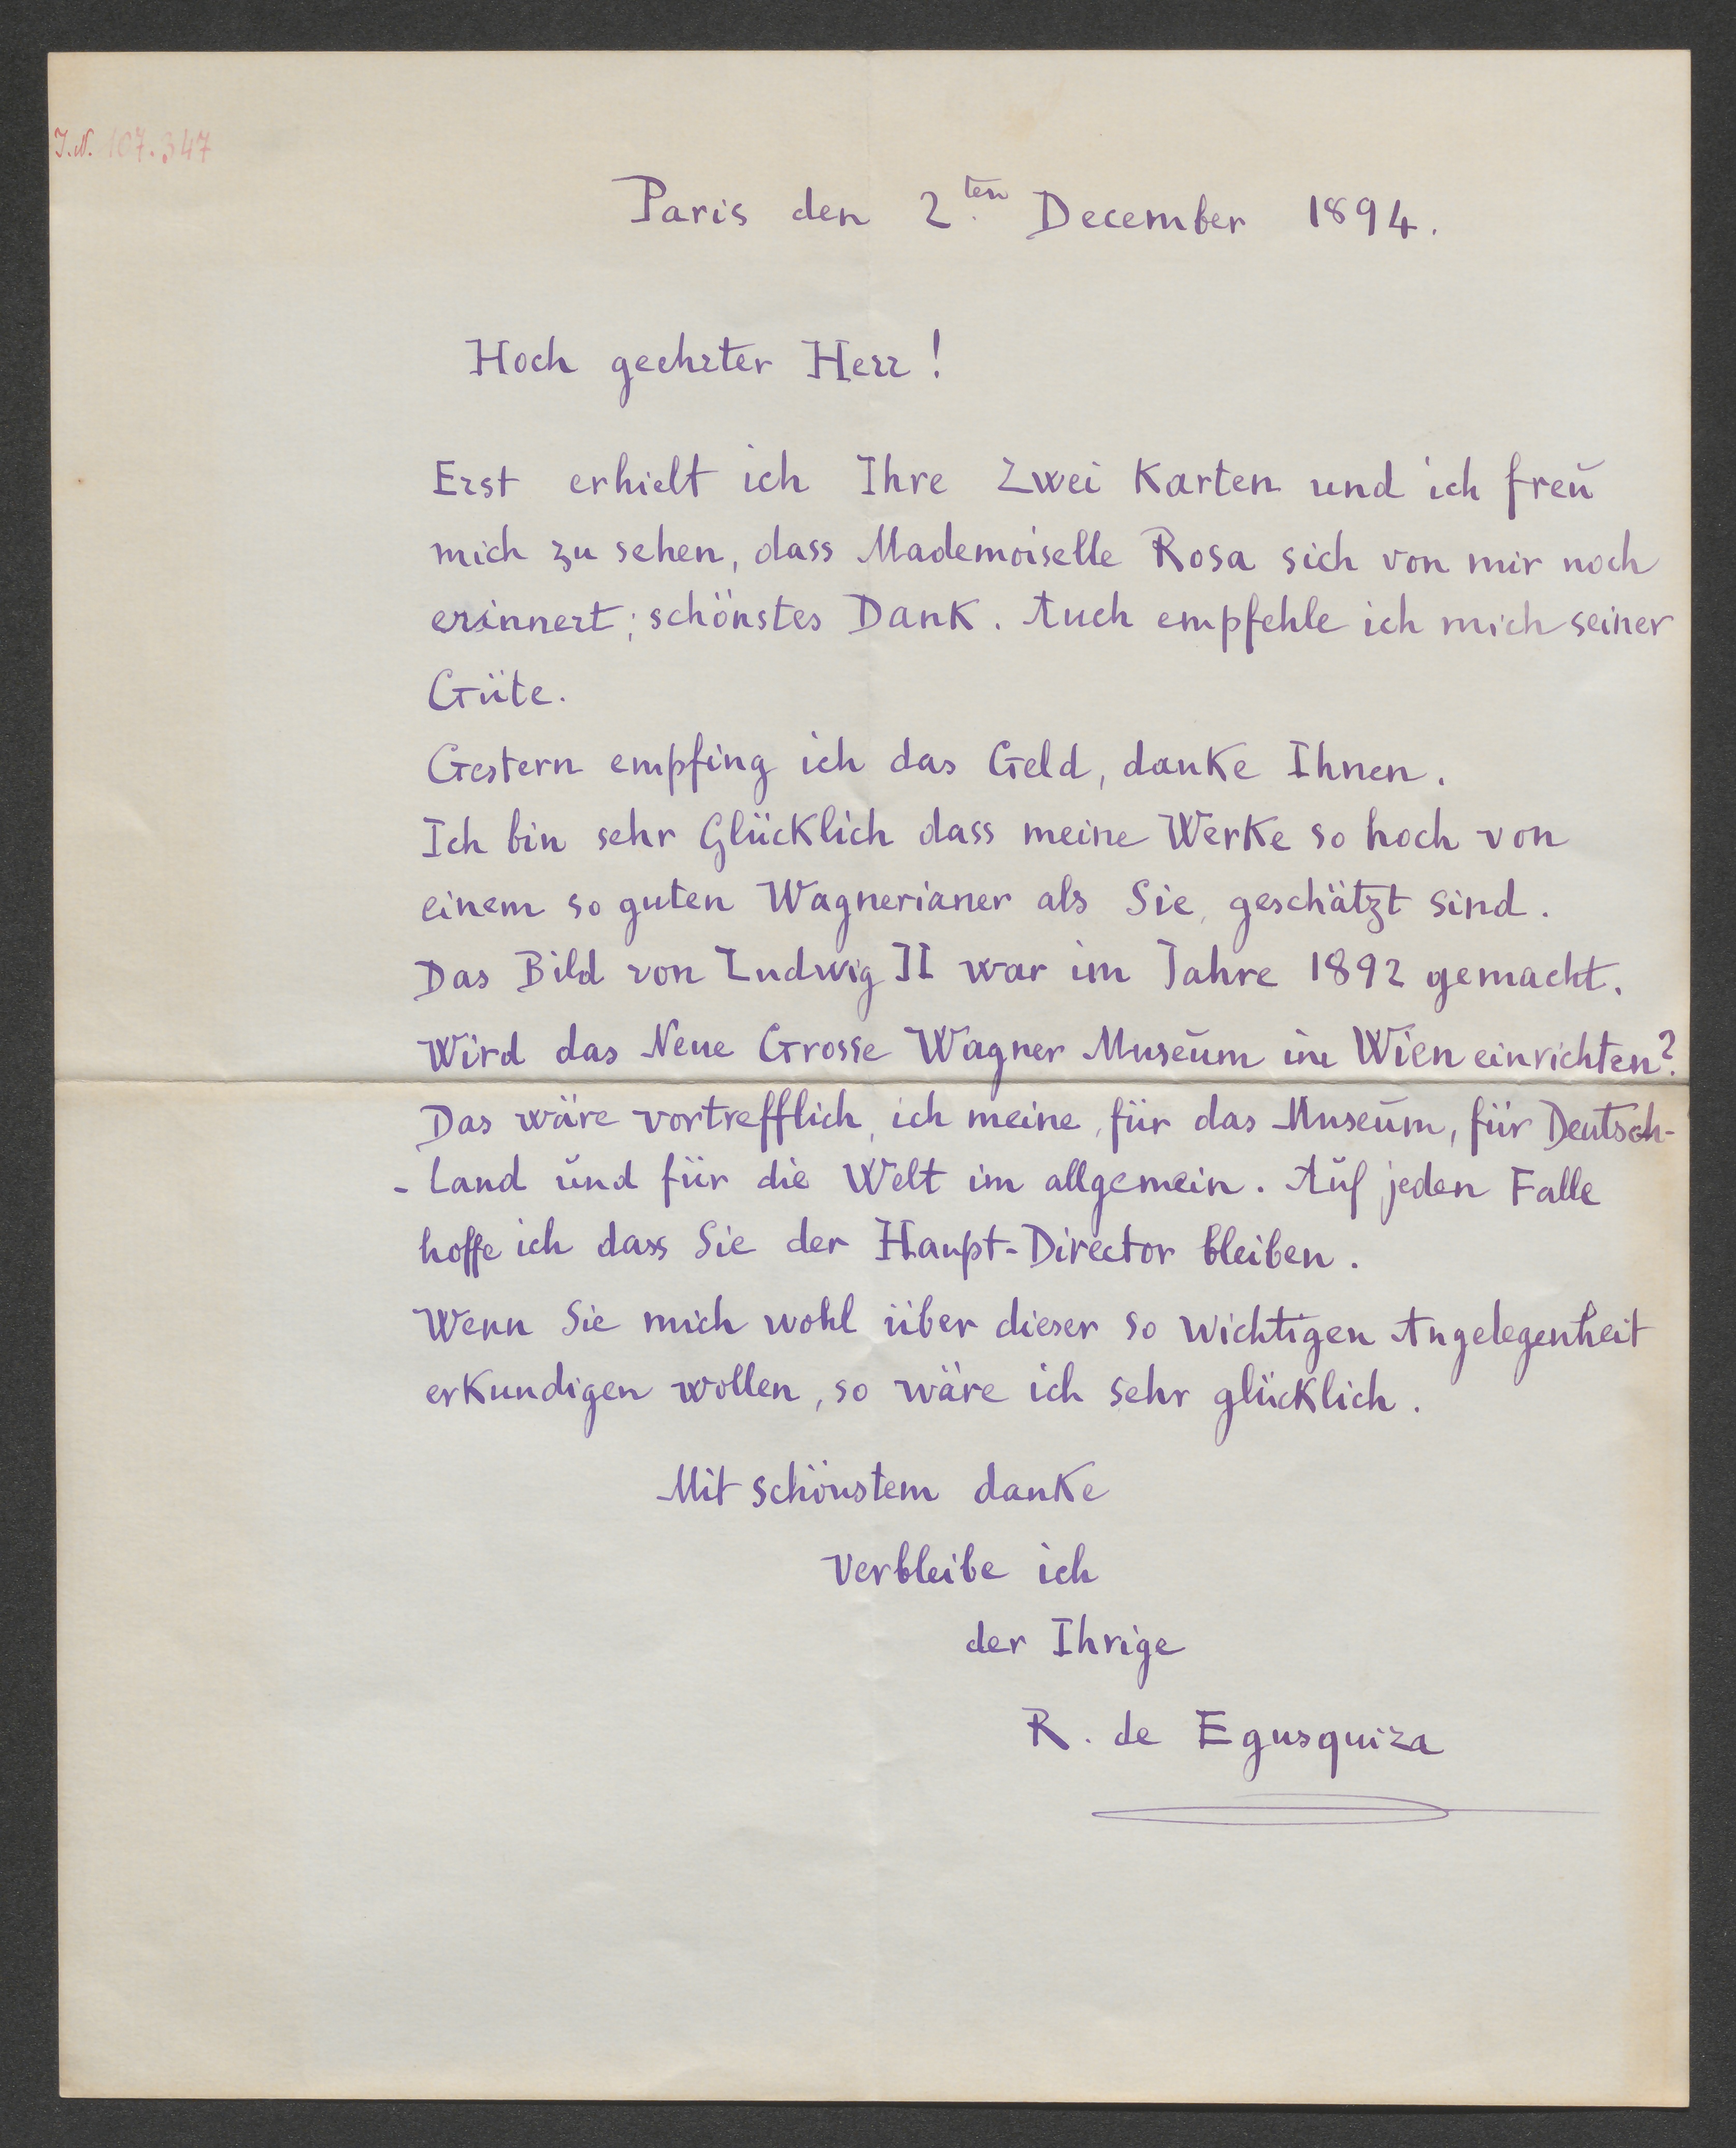 J.N. 107.347
Paris den 2.ten December 1894.
Hoch geehrter Herr!
Erst erhielt ich Ihre Zwei Karten und ich freŭ
mich zu sehen, dass Mademoiselle Rosa sich von mir noch
erinnert; schönstes Dank. Auch empfehle ich mich seiner
Güte.
Gestern empfing ich das Geld, danke Ihnen.
Ich bin sehr Glücklich dass meine Werke so hoch von
einem so guten Wagnerianer als Sie, geschätzt sind.
Das Bild von Ludwig II war im Jahre 1892 gemacht.
Wird das Neue Grosse Wagner Museŭm in Wien einrichten?
Das wäre vortrefflich, ich meine, für das Museŭm, für Deutsch-
-land ŭnd für die Welt im allgemein. Aŭf jeden Falle
hoffe ich dass Sie der Haupt-Director bleiben.
Wenn Sie mich wohl über dieser so wichtigen Angelegenheit
erkundigen wollen, so wäre ich sehr glücklich.
Mit schönstem danke
Verbleibe ich
der Ihrige
R. de Egusquiza